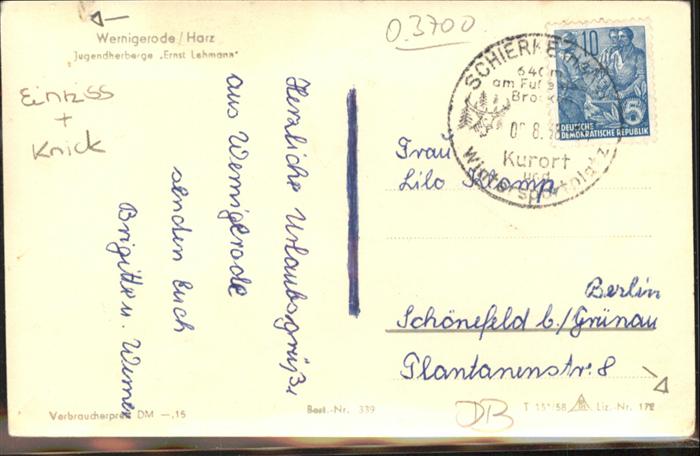 Wernigerode / Harz
Jugendherberge „Ernst Lehmann"
Einriss
+
Knick
Herzliche Urlaubsgrüße
aus Wernigerode
senden Euch
Brigitte u. Werner
Verbraucherpreis DM —,15
Best.-Nr. 339
0.3700
SCHIERKE
640m
am Fuße
Kurort
und
Wintersportplatz
10
5
DEUTSCHE
DEMOKRATISCHE REPUBLIK
Frau
Lilo Klamp
Berlin
Schönefeld b./Grünau
Plantanenstr. 8
DB
T 151/58 Liz.-Nr. 172